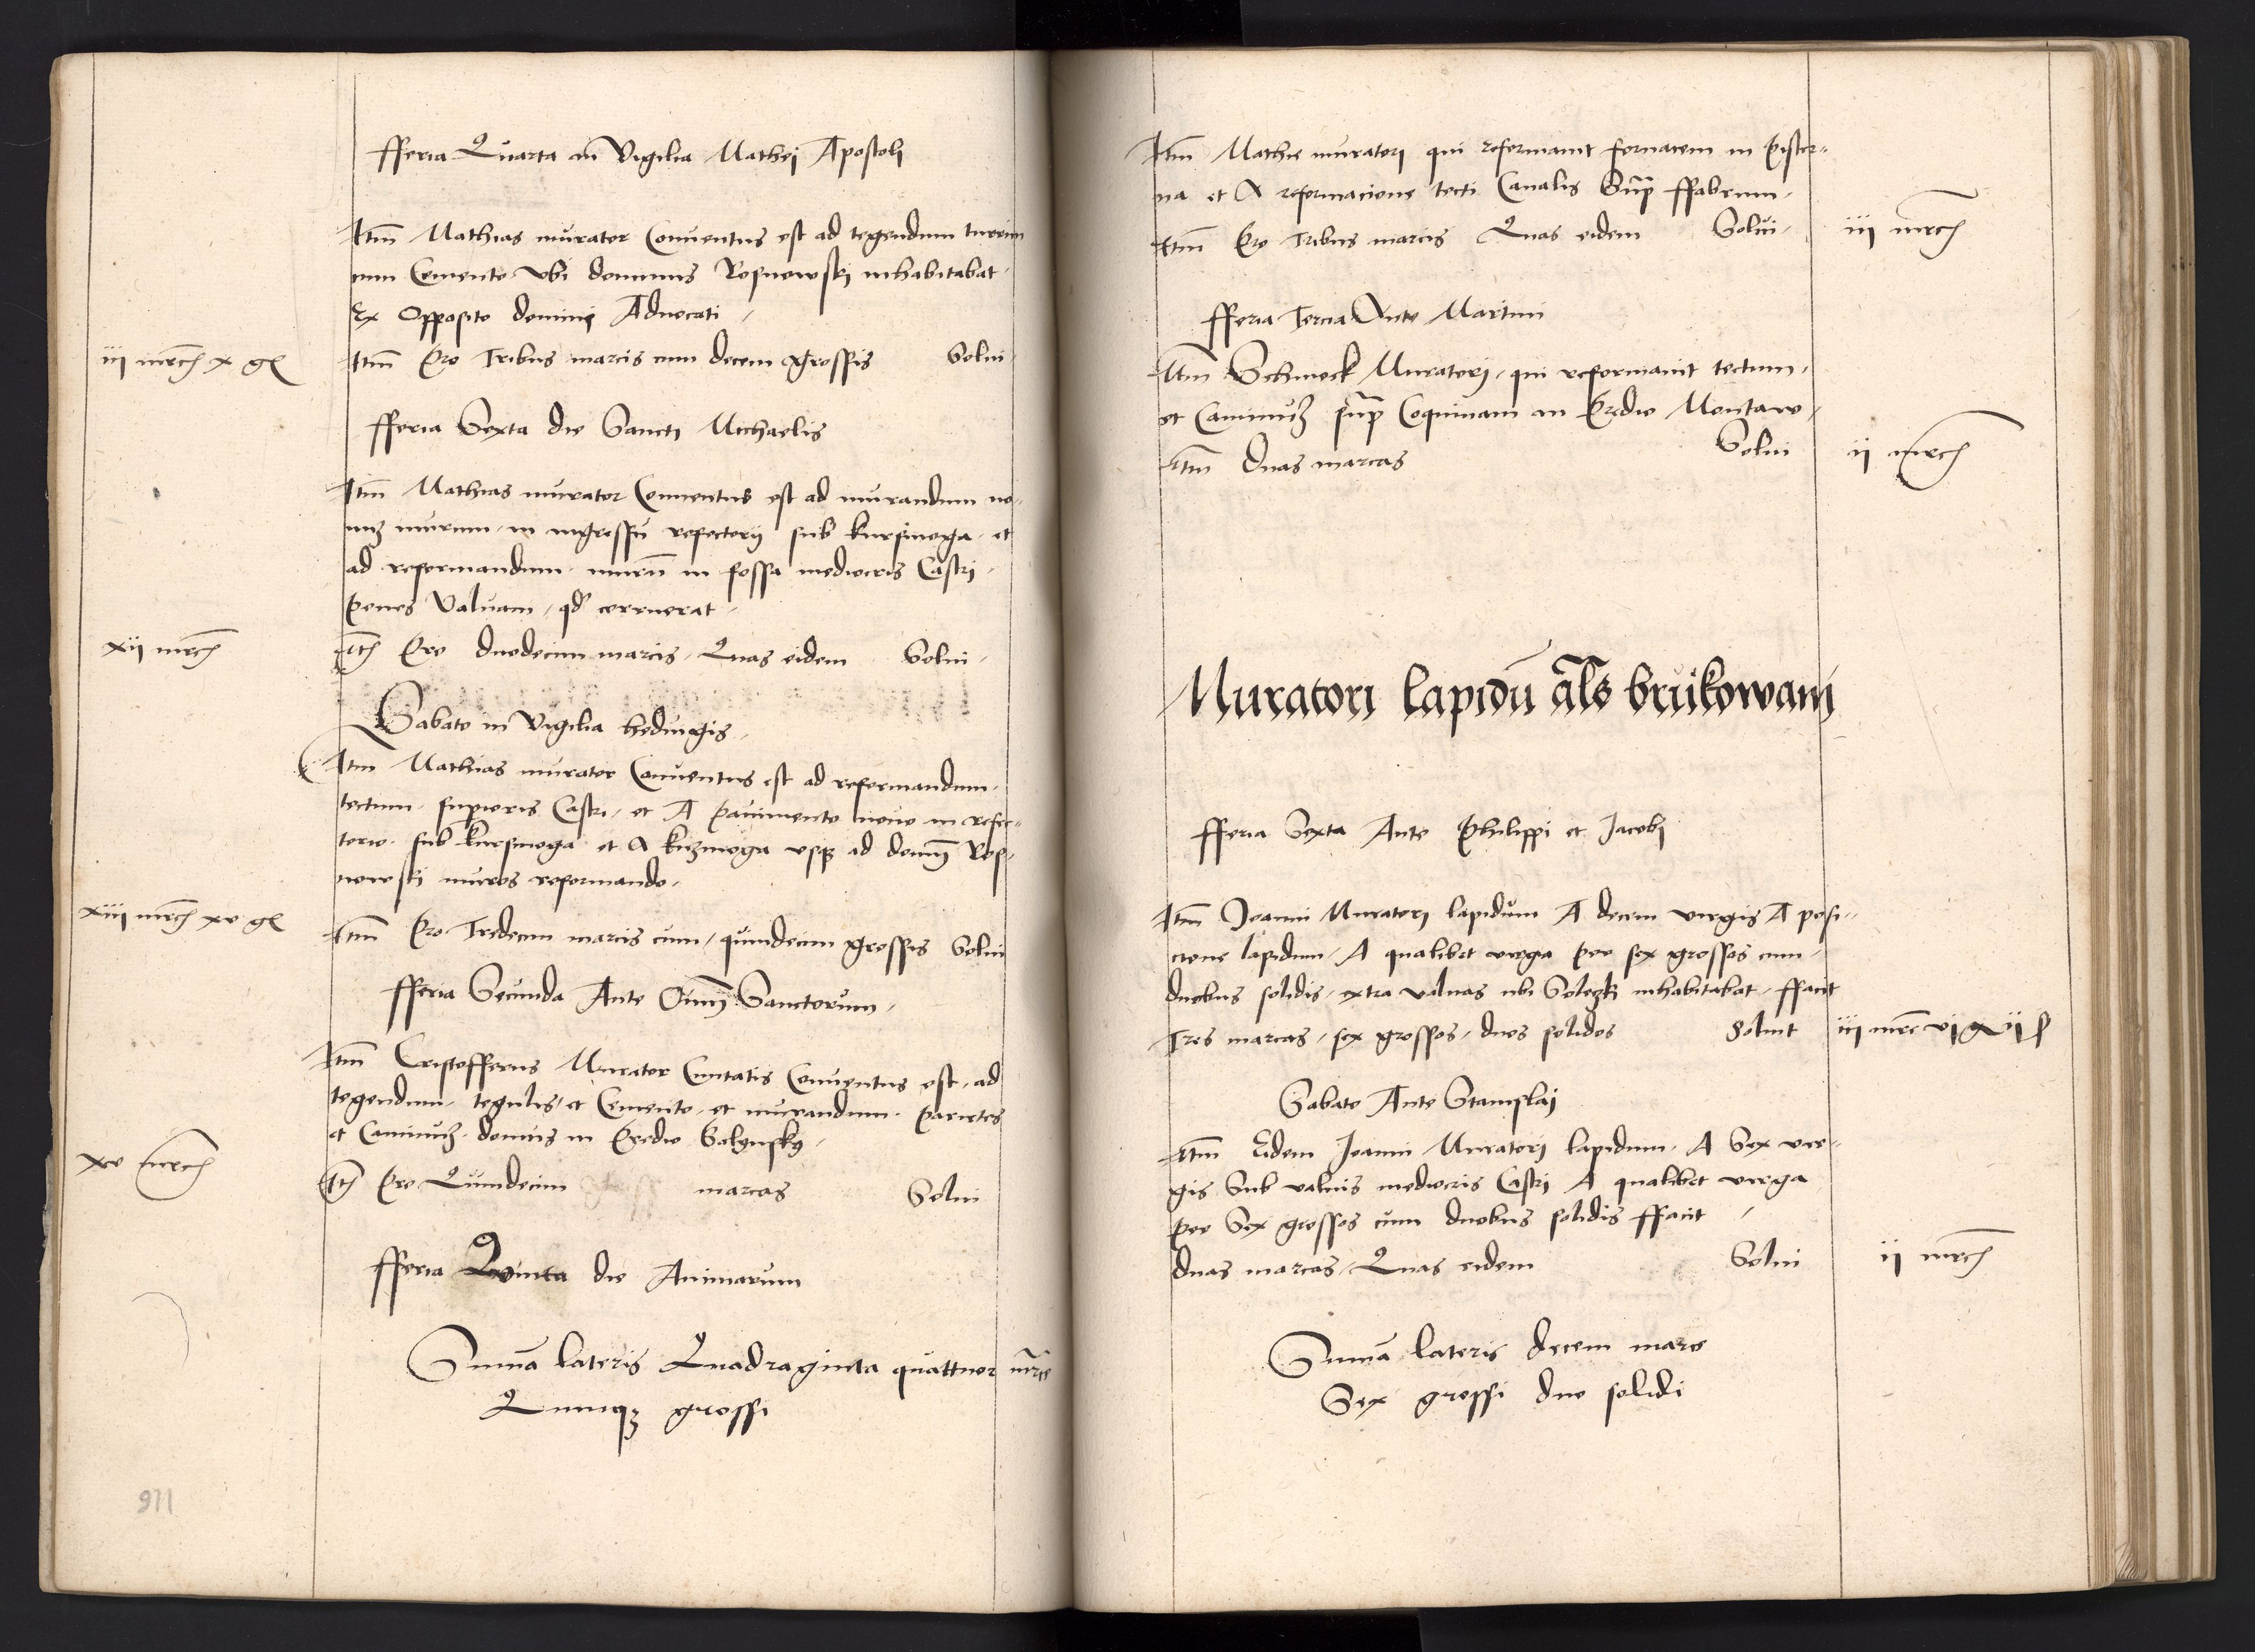 fferia Quarta in Vigilia Mathej Apostoli
Itm Mathias murator Conuentus est ad tegendum turrim
cum Cemento vbi dominus Rosnowski inhabitabat
Ex Opposito dominj Aduocati
iij mrcJ x gl Itm Pro Tribus marcis cum decem grossis Solui
fferia Sexta die Sancti Michaelis
Itm Mathias murator Conuentus est ad murandum no-
uuz murum in ingressu refectorij sub kursinoga et
ad reformandum murū in fossa mediocris Castri
penes Valuam qd cerruerat
xij mrcJ Itm Pro duodecim marcis Quas eidem Solui
Sabato in Vigilia hedwigis
Itm Mathias murator Conuentus est ad reformandum
tectum supioris Castri et A pauimento nouo in refec=
torio sub kursinoga et A kuzinoga vsqz ad domū Ros
nowski muros reformando
xiij mrcJ xv gl Itm Pro Tredecim marcis cum quindecim grossis Solui
fferia Secunda Ante Oim Sanctorum
Itm Cristofferus Murator Ciuitatis Conuentus est ad
tegendum tegulis et Cemento et murandum parietes
et Caminuz domus in Predio Solynsky
xv mrcJ Itm Pro Quindecim marcas Solui
fferia Quinta die Animarum
Suma lateris Quadraginta quattuor mrc
Quinqz grossi
911
Itm Mathie muratori qui reformauit fornacem in pistor=
na et A reformacione tecti Canalis Sup ffabrum
Itm Pro Tribus marcis Quas eidem Solui iij mrcJ
fferia Tercia Ante Martini
Itm Schmeck Muratorj qui reformauit tectum
et Caminuz sup Coquinam in Predio Montaw
Itm duas marcas Solui ij mrcJ
Muratori lapidū als brukowani
fferia Sexta Ante Philippi et Jacobj
Itm Joanni Muratorj lapidum A decem virgis A posi=
cione lapidum A qualibet virga per sex grossos cum
duobus solidis extra valuas ubi Solezki inhabitabat ffacit
Tres marcas sex grossos duos solidos Soluit iij mrc vj g ij ß
Sabato Ante Stanislaj
Itm Eidem Joanni Muratorj lapidum A Sex vir=
gis Sub valuis mediocris Castri A qualibet virga
per Sex grossos cum duobus solidis ffacit
duas marcas Quas eidem Solui ij mrcJ
Suma lateris decem marc
Sex grossi duo solidi